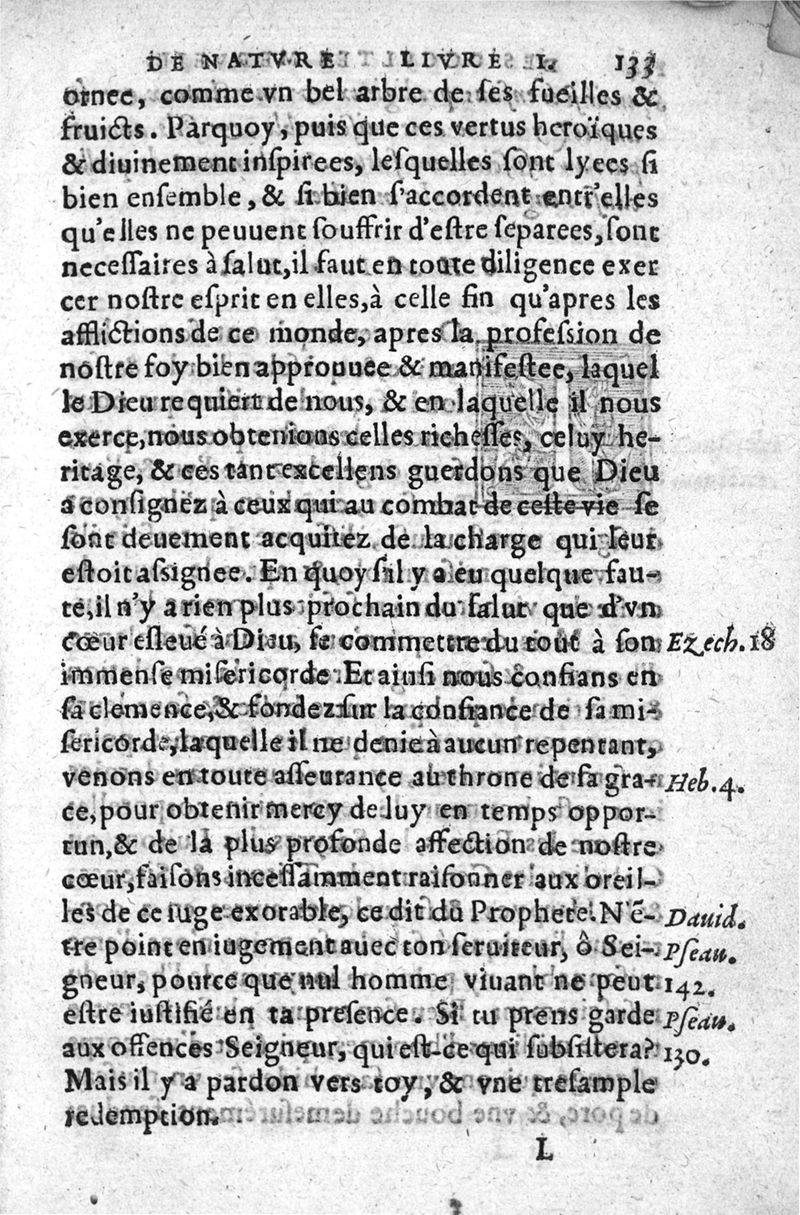 DE NATVRE LIVRE I. 133
ornee, comme vn bel arbre de ſes fueilles &
fruicts. Parquoy, puis que ces vertus heroïques
& diuinement inſpirees, leſquelles ſont lyees ſi
bien enſemble, & ſi bien ſ'accordent entr'elles
qu'elles ne peuuent ſouffrir d'eſtre ſeparees, ſont
neceſſaires à ſalut, il faut en toute diligence exer
cer noſtre eſprit en elles, à celle fin qu'apres les
afflictions de ce monde, apres la profeſſion de
noſtre foy bien approuuee & manifeſtee, laquel
le Dieu requiert de nous, & en laquelle il nous
exerce, nous obtenions celles richeſſes, celuy he-
ritage, & ces tant excellens guerdons que Dieu
a conſignez à ceux qui au combat de ceſte vie ſe
ſont deuement acquitez de la charge qui leur
eſtoit aſsignee. En quoy ſ'il y a eu quelque fau-
te, il n'y a rien plus prochain du ſalut que d'vn
cœur eſleué à Dieu, ſe commettre du tout à ſon Ezech. 18
immenſe miſericorde. Et ainſi nous confians en
ſa clemence, & fondez ſur la confiance de ſa mi-
ſericorde, laquelle il ne denie à aucun repentant,
venons en toute aſſeurance au throne de ſa gra- Heb. 4.
ce, pour obtenir mercy de luy en temps oppor-
tun, & de la plus profonde affection de noſtre
cœur, faiſons inceſſamment raiſonner aux oreil-
les de ce iuge exorable, ce dit du Prophete. N'ē- Dauid.
tre point en iugement auec ton ſeruiteur, ô Sei- Pſeau.
gneur, pource que nul homme viuant ne peut 142.
eſtre iuſtifié en ta preſence. Si tu prens garde Pſeau.
aux offences Seigneur, qui eſt-ce qui ſubſiſtera? 130.
Mais il y a pardon vers toy, & vne treſample
redemption.
L